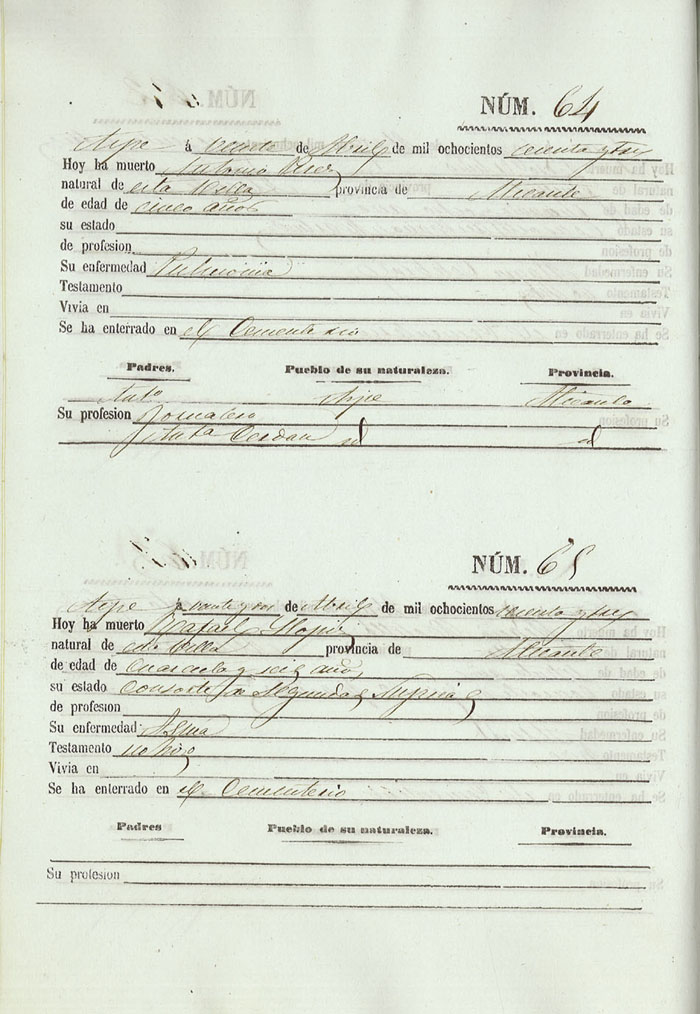 NÚM. 64
Aspe á veinte de Abril de mil ochocientos sesenta y tres
Hoy ha muerto Antonio Perez
natural de esta Villa provincia de Alicante
de edad de cinco años
su estado
de profesion
Su enfermedad Pulmonia
Testamento
Vivia en
Se ha enterrado en el Cementerio
Padres. Pueblo de su naturaleza. Provincia.
Anto Aspe Alicante
Su profesion Jornalero
Anta Cerdan id id
NÚM. 65
Aspe á veinte y dos de Abril de mil ochocientos sesenta y tres
Hoy ha muerto Rafael Llopis
natural de esta Villa provincia de Alicante
de edad de cuarenta y seis años
su estado Consorte de Segundas Nupcias
de profesion
Su enfermedad Asma
Testamento no hizo
Vivia en
Se ha enterrado en el Cementerio
Padres Pueblo de su naturaleza. Provincia.
Su profesion